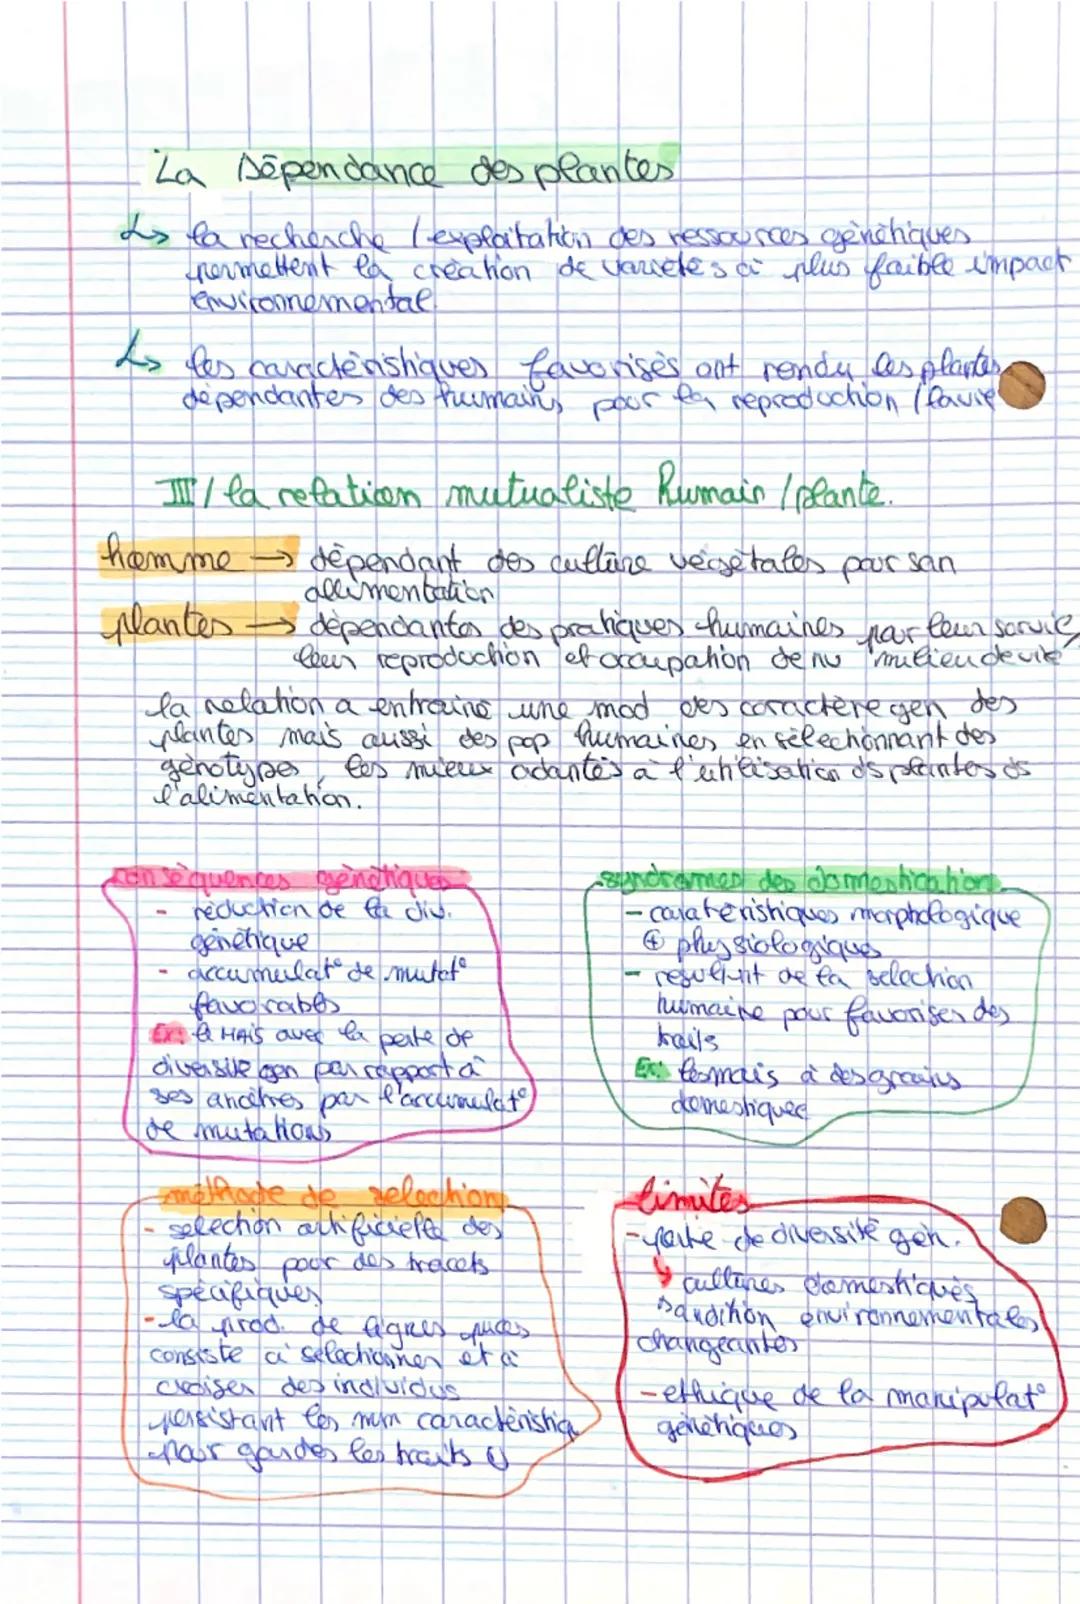 La Dépendance des plantes
↳ la recherche / exploitation des ressources génétiques
permettent la création de variétés à plus faible impact
environnemental.
↳ les caractéristiques favorisés ont rendu les plantes
dépendantes des humains pour la reproduction /
III / la relation mutualiste humain / plante.
homme → dépendant des culture végétales pour son
allimentation
plantes → dépendantes des pratiques humaines par leur survie,
leur reproduction et occupation de nv milieu de vie
la relation a entrainé une mod des caractère gen des
plantes mais aussi des pop humaines en sélectionnant des
génotypes, les mieux adantés à l'utilisation ds plantes ds
l'alimentation.
conséquences génétiques
- réduction de la div.
génétique
- accumulat° de mutat°
favorables
Ex: le MAÏS avec la perte de
diversité gen par rapport à
ses ancêtres par l'accumulat°
de mutations
syndromes des domestication
- caratéristiques morphologique
⊕ physiologiques
- résultant de la selection
humaine pour favoriser des
traits
Ex: les mais à des grains
domestiques
méthode de selection
- selection artificielle des
plantes pour des tracets
spécifiques
- la prod. de lignes pures
consiste à sélectionner et à
croiser des individus
persistant les mm caractéristiq
pour gardes les traits
limites
- perte de diversité gén.
↳ cultures domestiqués
condition environnementales
changeantes
- ethique de la manipulat°
génétiques